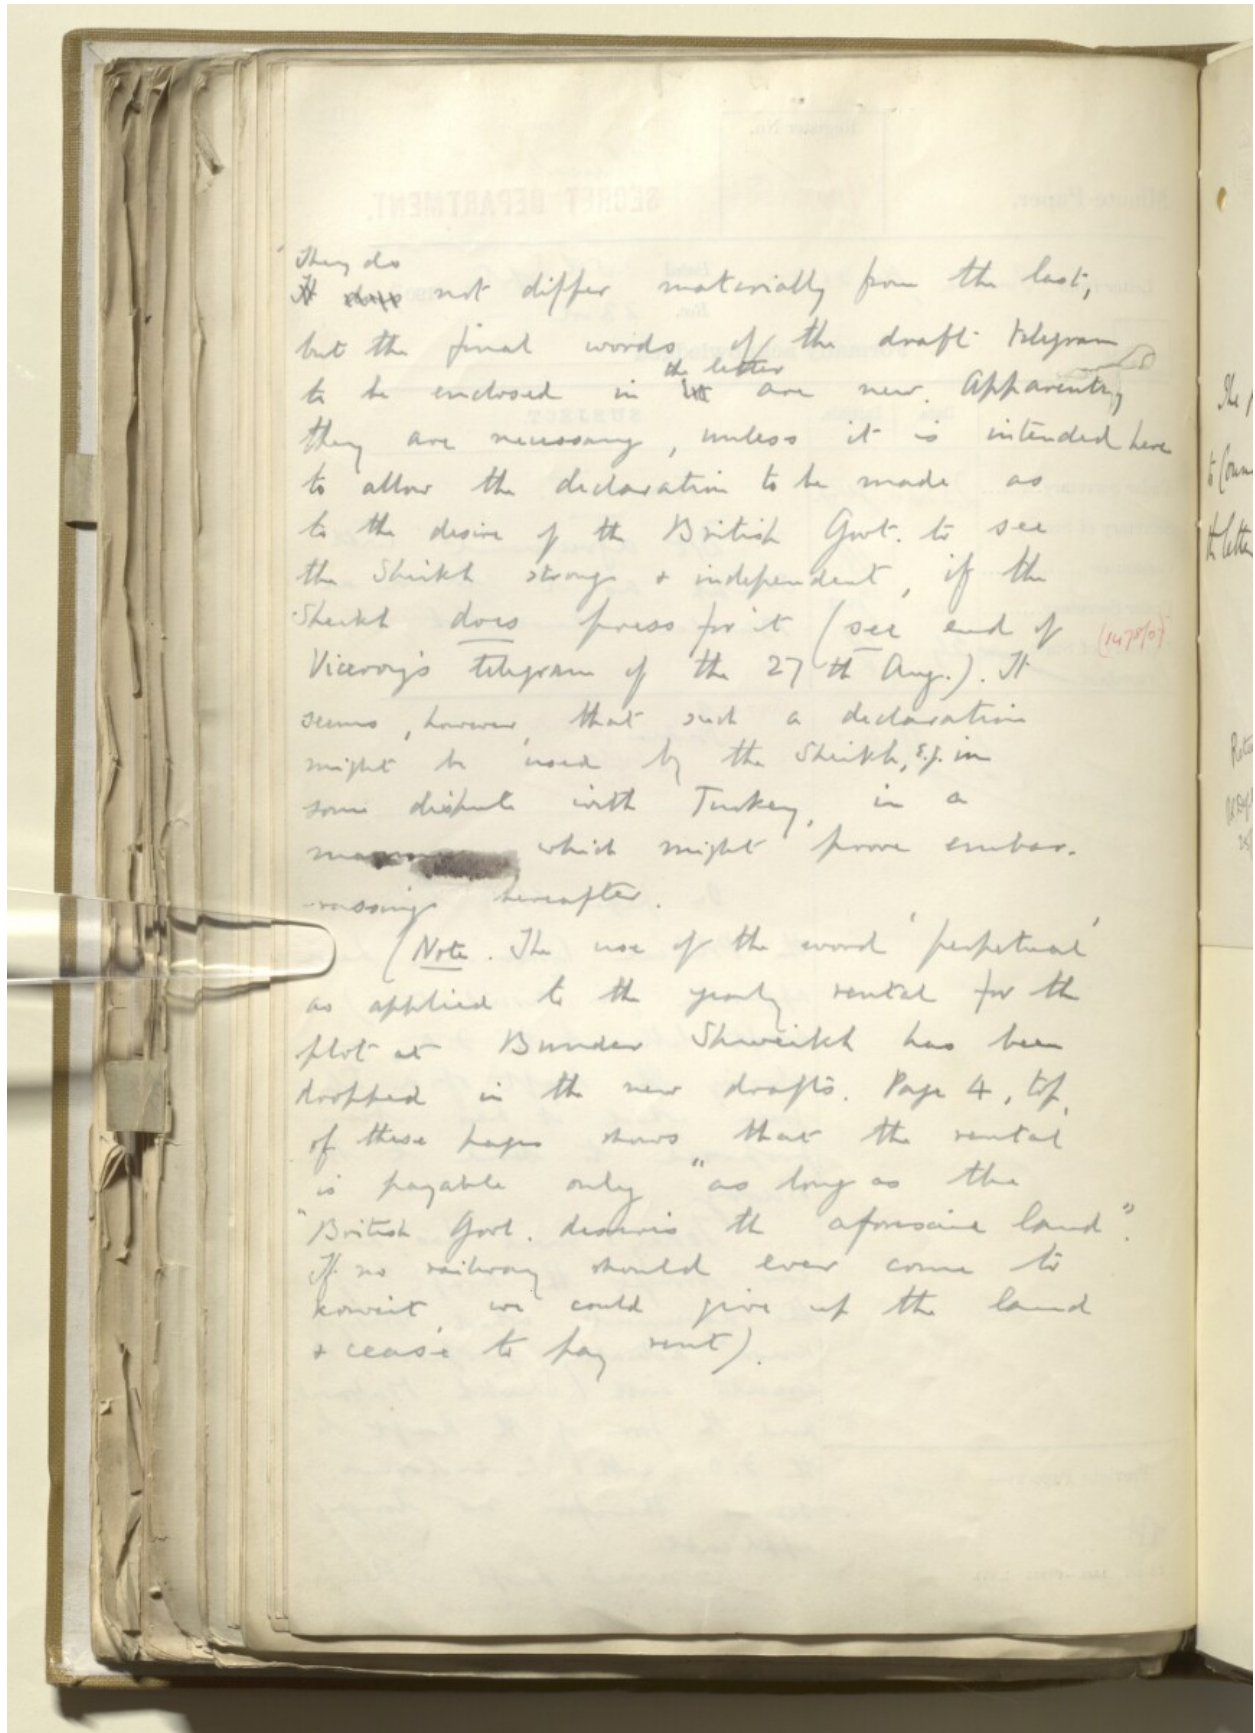 They do
It does not differ materially from the last,
but the final words of the draft telegram
the letter
to be enclosed in it are new. Apparently
they are necessary, unless it is intended here
to allow the declaration to be made as
to the desire of the British Govt. to see
the Sheikh strong & independent, if the
Sheikh does press for it (see end of
(1478/07)
Viceroy's telegram of the 27th Aug.). It
seems, however, that such a declaration
might be used by the Sheikh, e.g. in
some dispute with Turkey, in a
manner which might prove embar-
-rassing hereafter.
(Note. The use of the word 'perpetual'
as applied to the yearly rental for the
plot at Bunder Shweikh has been
dropped in the new drafts. Page 4, top,
of these pages shows that the rental
is payable only "as long as the
"British Govt. desires the aforesaid land".
If no railway should ever come to
Koweit, we could give up the land
& cease to pay rent).
Register No.
SECRET DEPARTMENT.
Minute Paper.
SUBJECT.
the letter